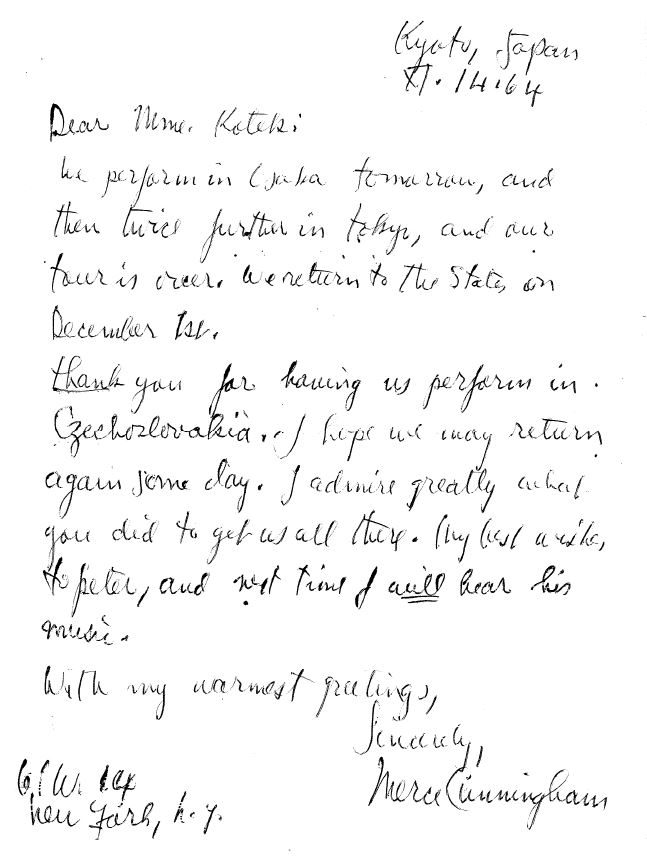 Kyoto, Japan
XI.14.64
Dear Mme. Kotek:
We perform in Osaka tomorrow, and
then twice further in Tokyo, and our
tour is over. We return to the States on
December 1st.
Thank you for having us perform in
Czechozlovakia. I hope we may return
again some day. I admire greatly what
you did to get us all there. My best wishes
to Peter, and next time I will hear his
music.
With my warmest greetings,
Sincerely,
Merce Cunningham
61 W. 14
New York, N.Y.